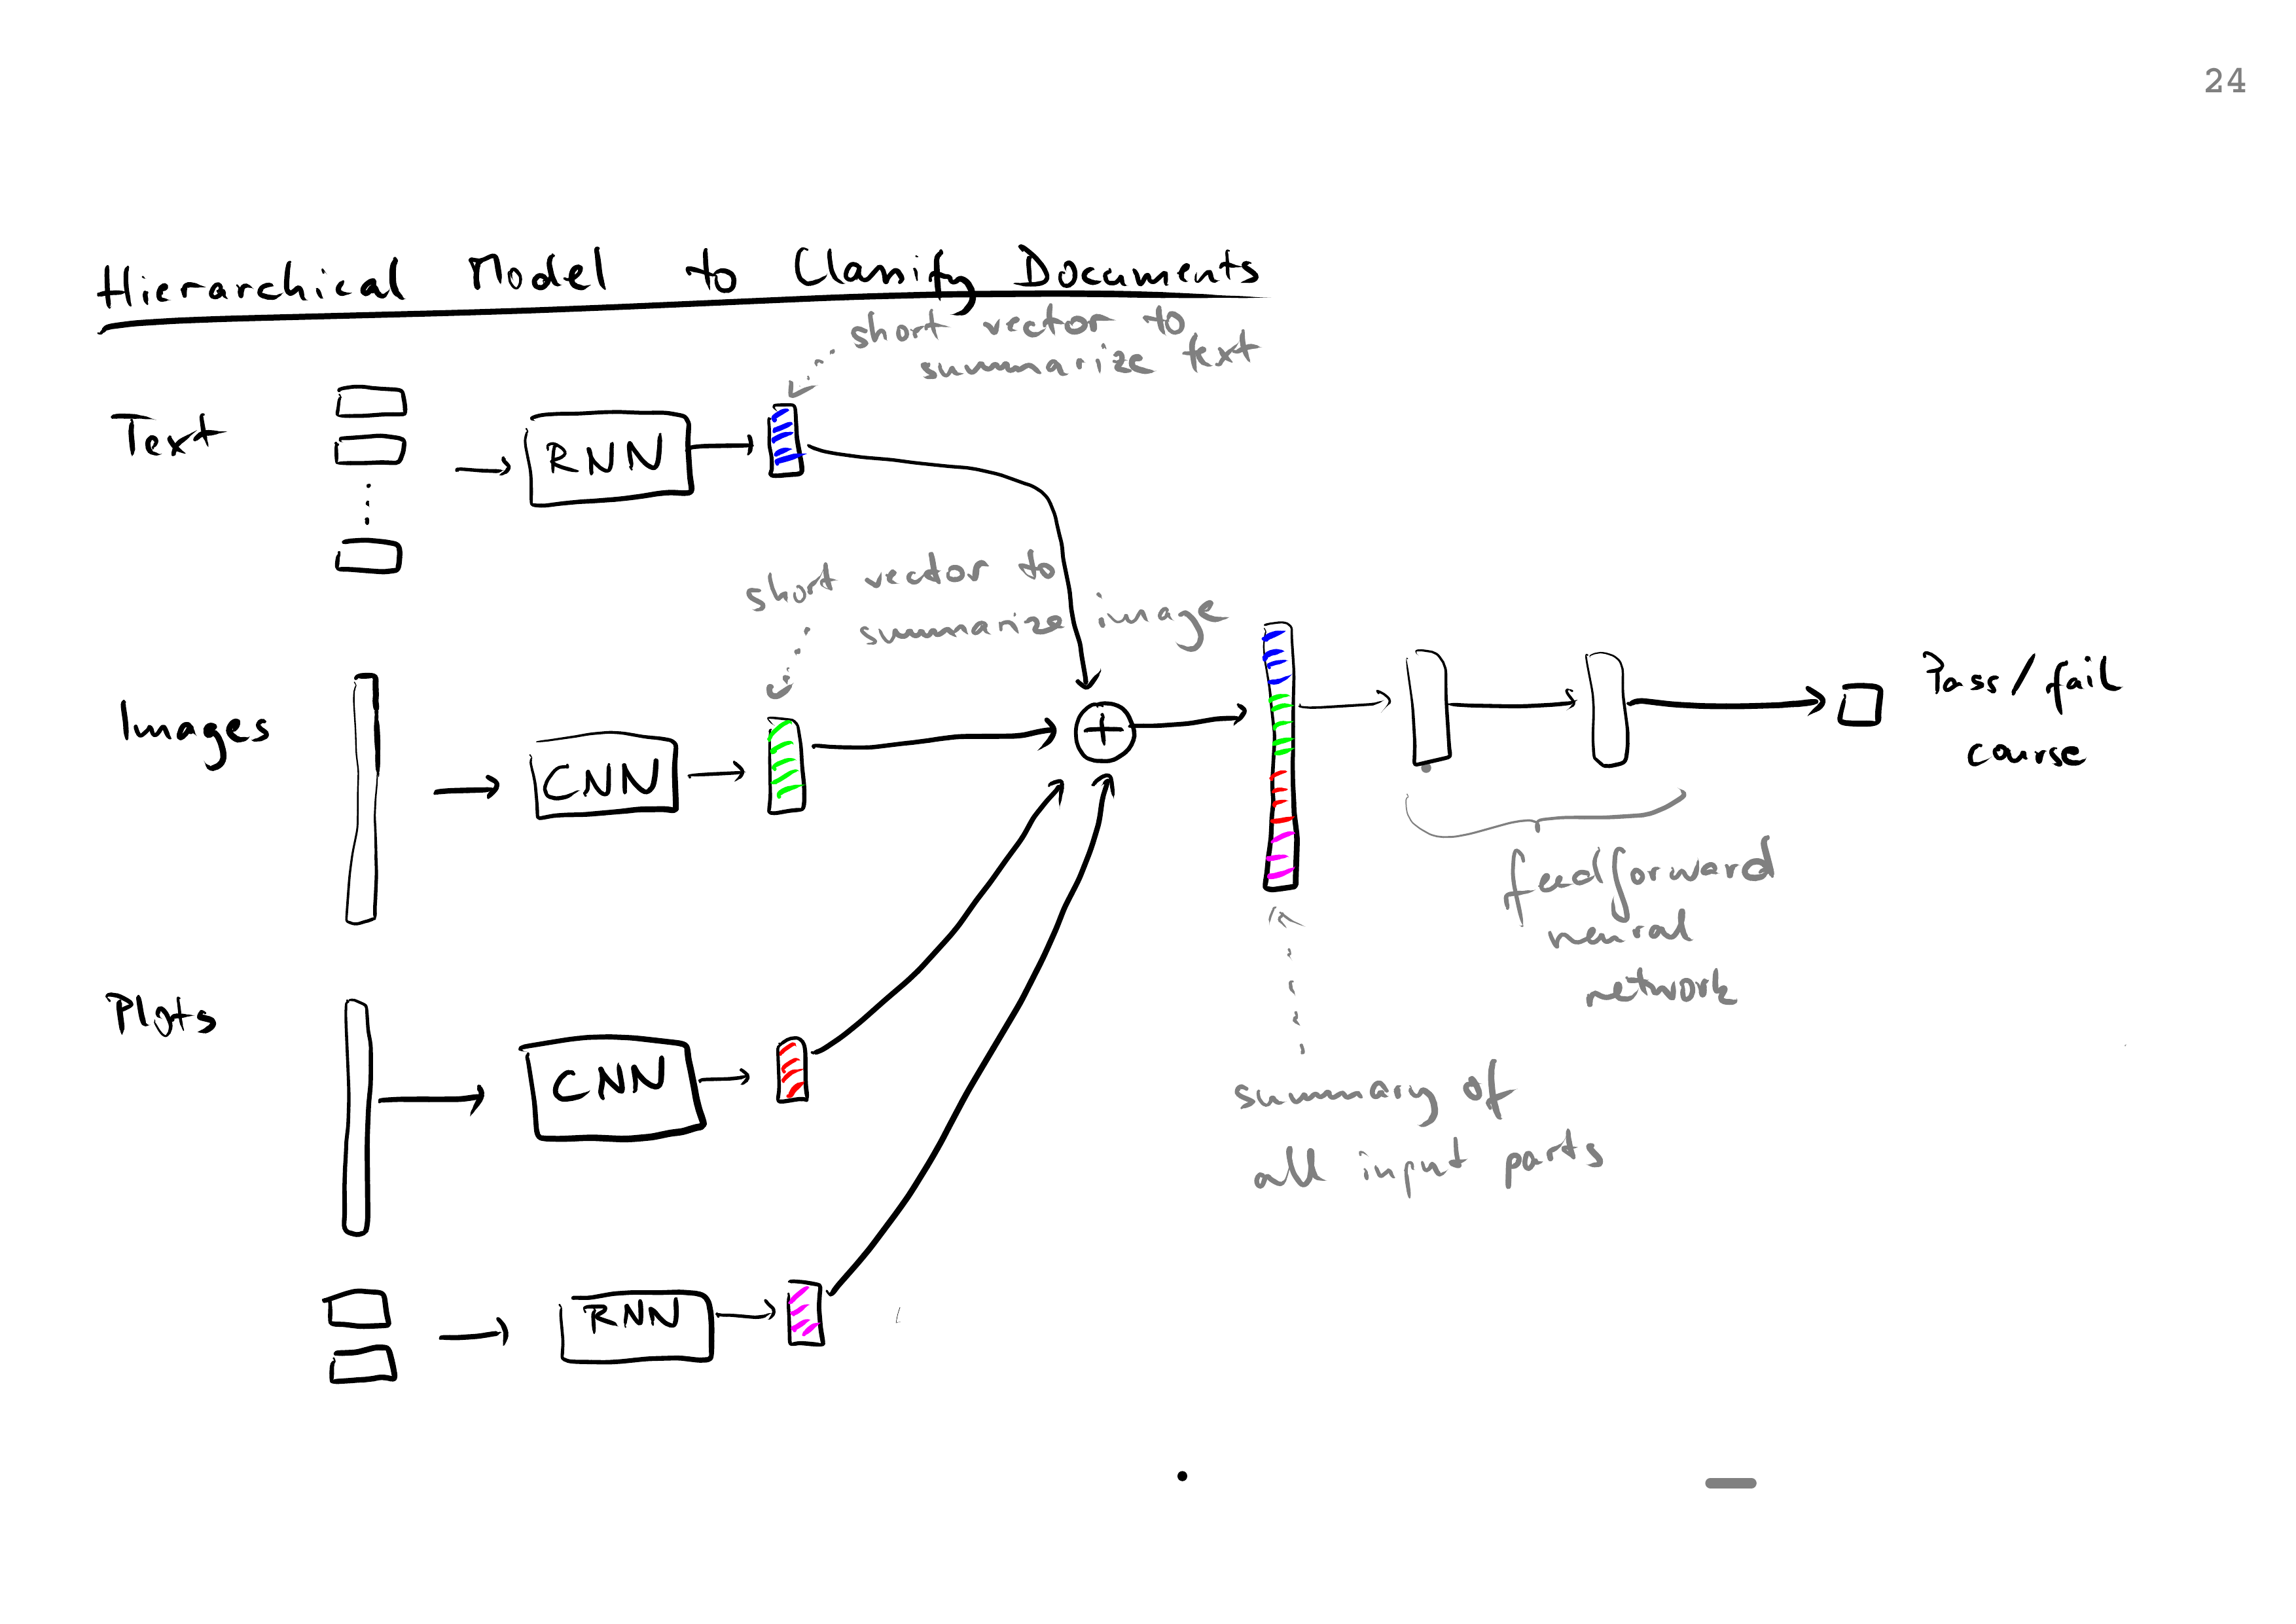 24
Hierarchical Model to Classify Documents
short vector to
summarize text
Text
RNN
short vector to
summarize image
Images
CNN
Pass/fail
course
feedforward
neural
network
Plots
CNN
summary of
all input parts
RNN